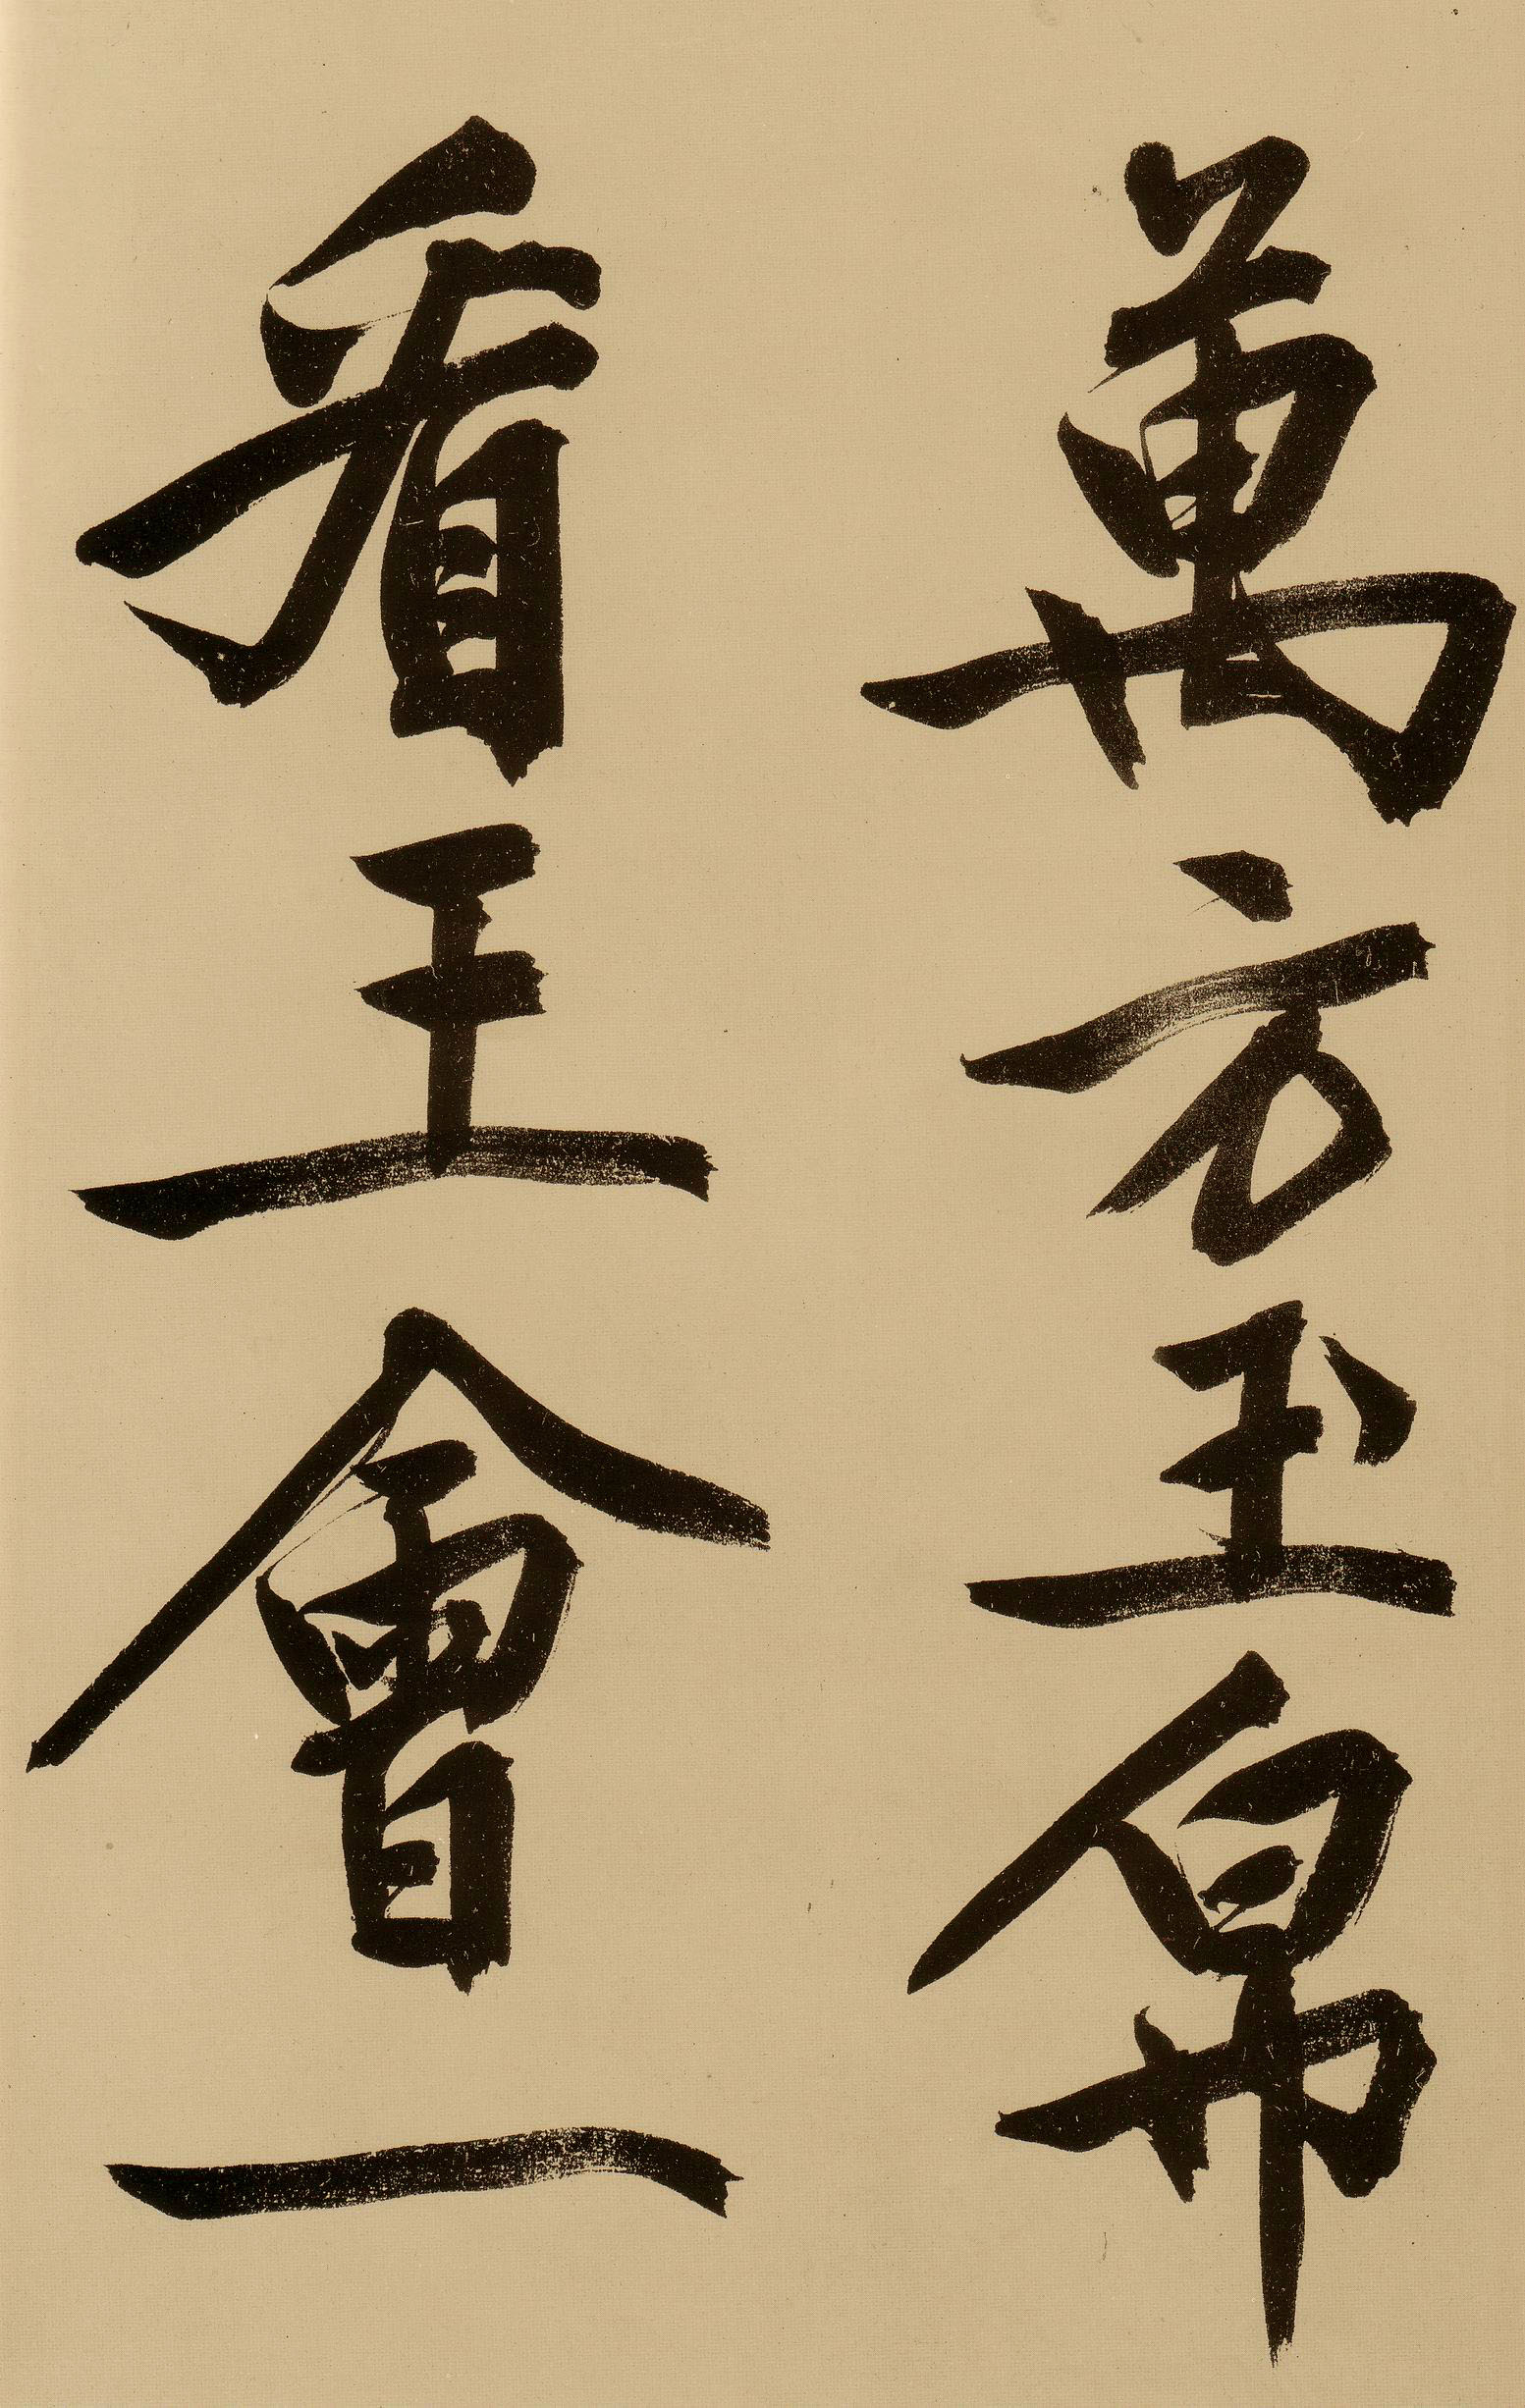 萬方玉帛
看王會一